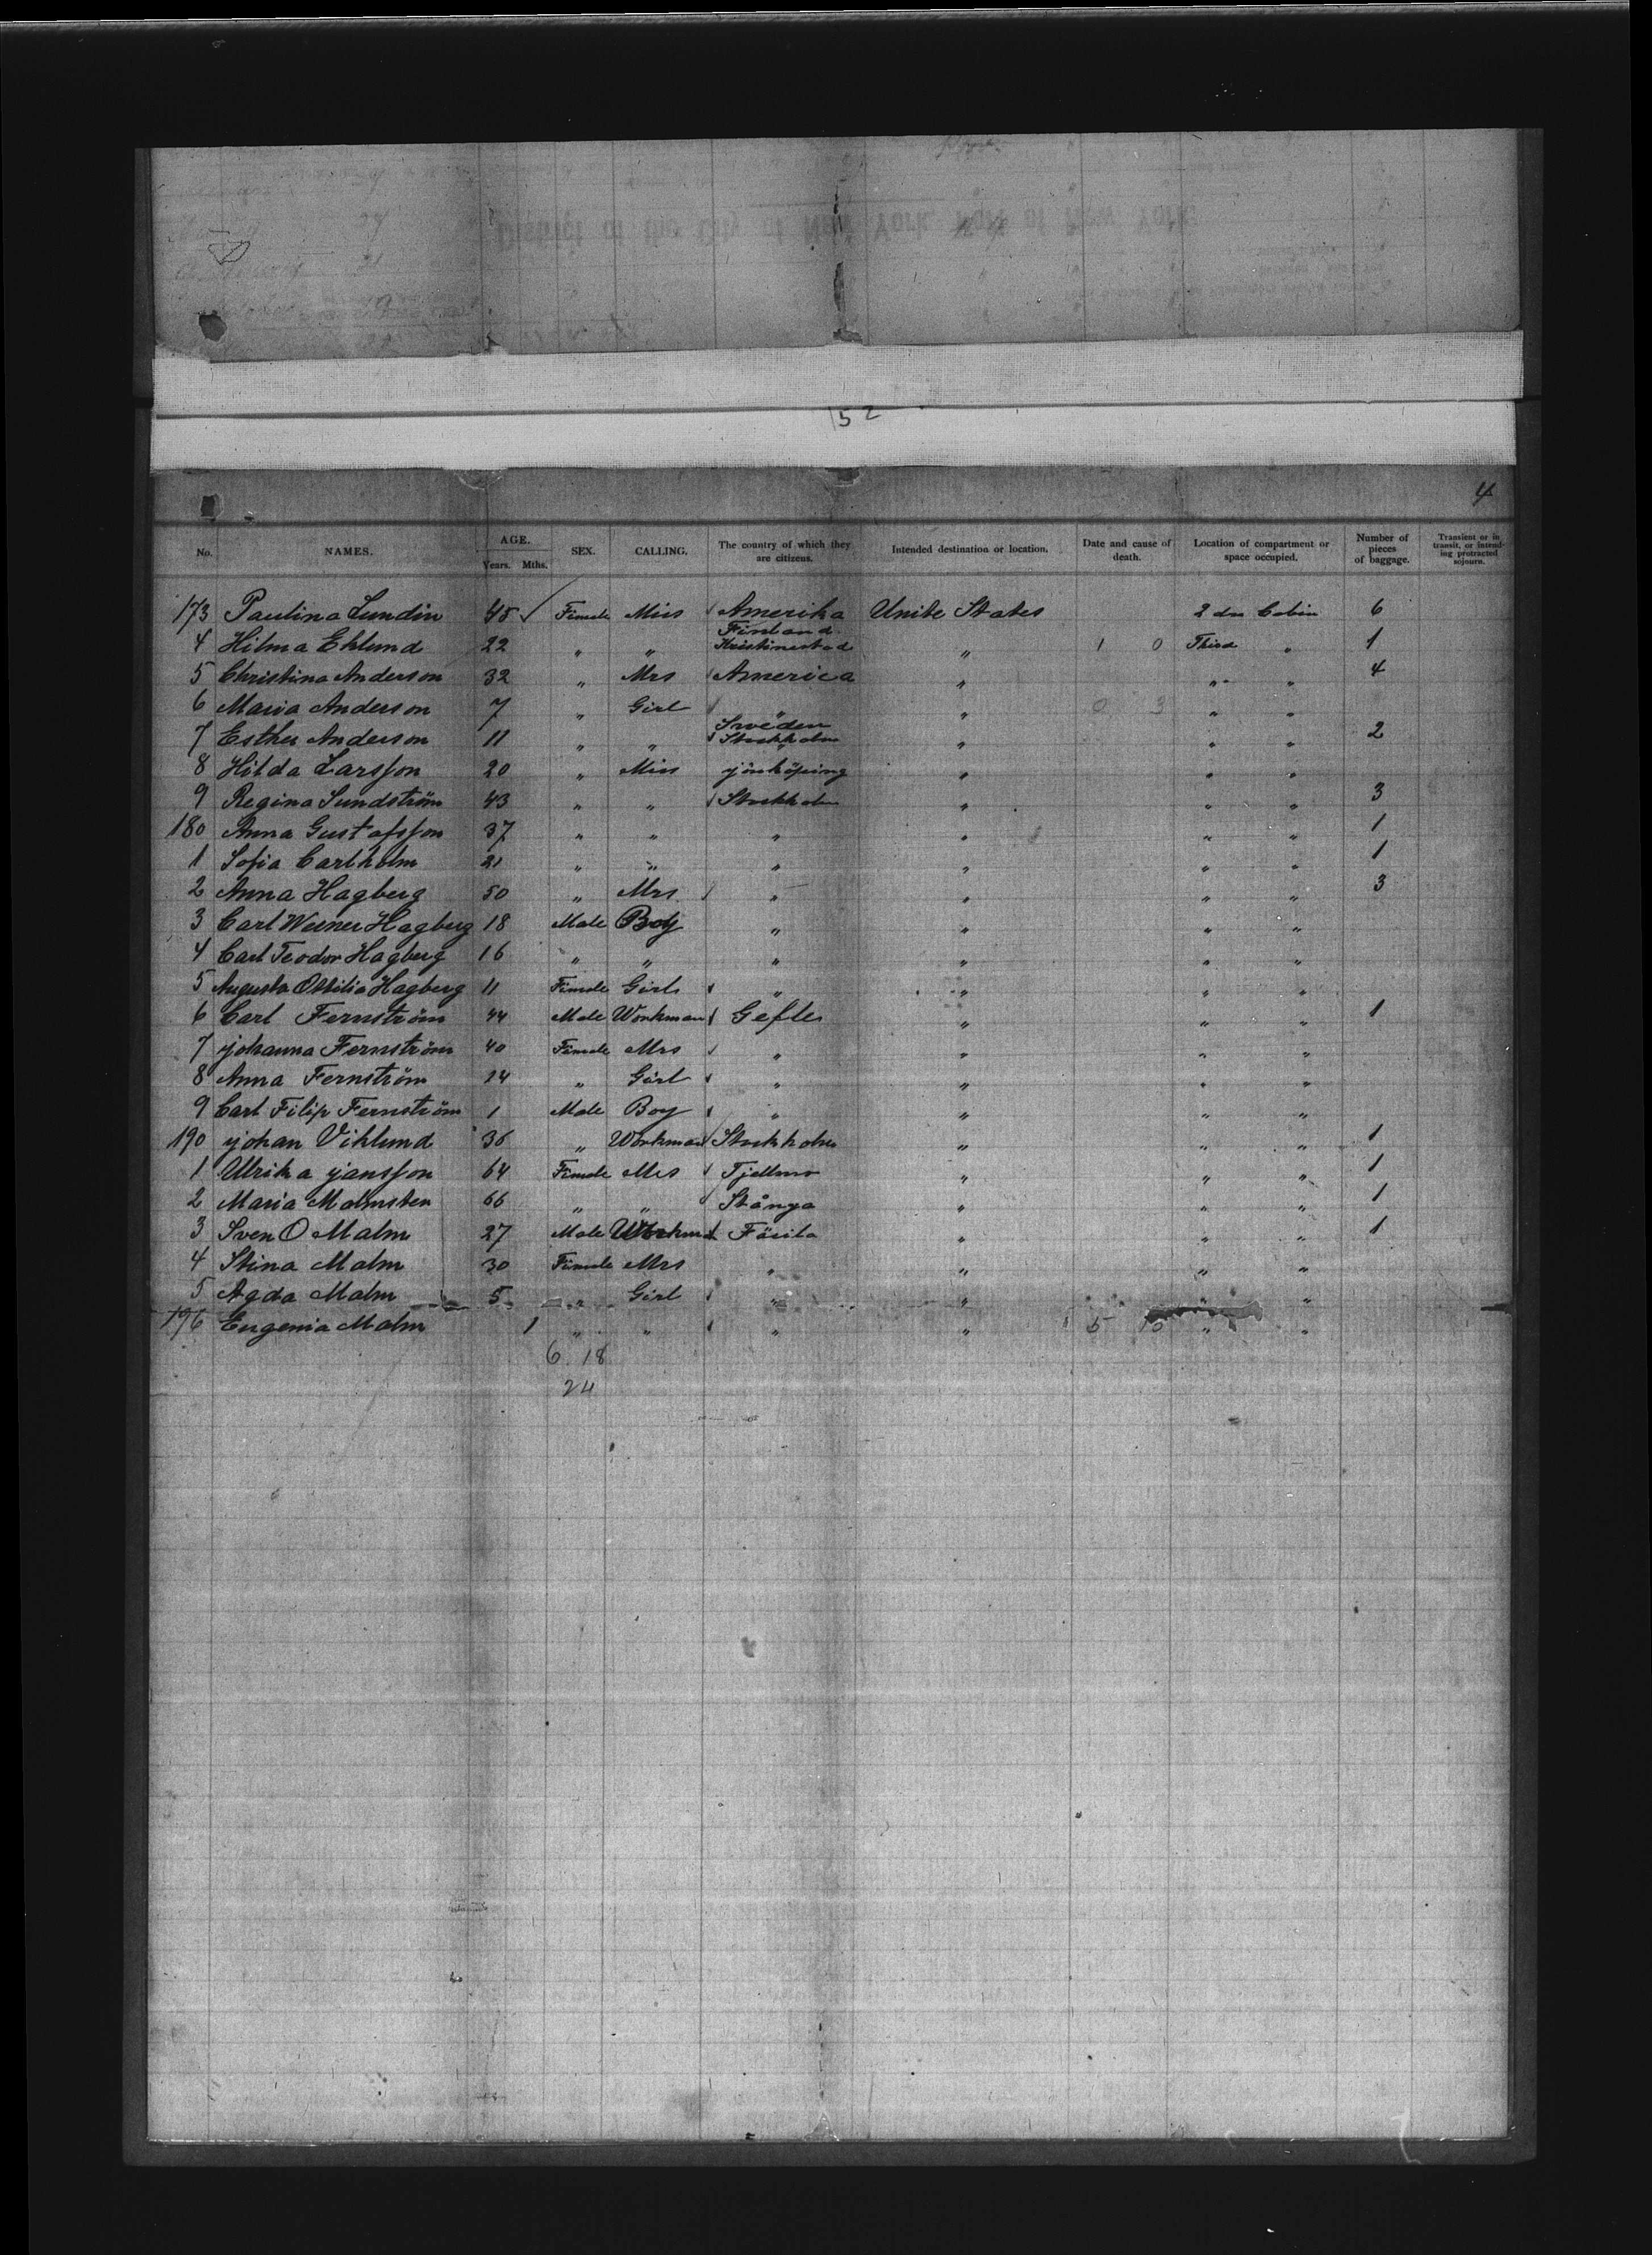 District of the City of New York, Port of New York.
52
4
No. NAMES. AGE. Years. Mths. SEX. CALLING. The country of which they are citizens. Intended destination or location. Date and cause of death. Location of compartment or space occupied. Number of pieces of baggage. Transient or in transit, or intending protracted sojourn.
173 Paulina Lundin 45 ✓ Fimale Miss Amerika Unite States 2 dn Cabin 6
4 Hilma Ehlund 22 " " Finland Kristinestad " 1 0 Third " 1
5 Christina Anderson 32 " Mrs America " " " 4
6 Maria Anderson 7 " Girl " " 0 3 " "
7 Esther Anderson 11 " " Sweden Stockholm " " " 2
8 Hilda Larsson 20 " Miss jönköping " " "
9 Regina Sundström 43 " " Stockholm " " " 3
180 Anna Gustafsson 37 " " " " " " 1
1 Sofia Carlholm 21 " " " " " " 1
2 Anna Hagberg 50 " Mrs " " " " 3
3 Carl Werner Hagberg 18 Male Boy " " " "
4 Carl Teodor Hagberg 16 " " " " " "
5 Augusta Ottilia Hagberg 11 Fimale Girl " " " "
6 Carl Fernström 44 Male Workman Gefle " " " 1
7 johanna Fernström 40 Fimale Mrs " " " "
8 Anna Fernström 14 " Girl " " " "
9 Carl Filip Fernström 1 Male Boy " " " "
190 johan Vihlund 36 " Workman Stockholm " " " 1
1 Ulrika jansson 64 Fimale Mrs Tjellmo " " " 1
2 Maria Malmsten 66 " " Stånga " " " 1
3 Sven O Malm 27 Male Workman Färila " " " 1
4 Stina Malm 30 Fimale Mrs " " " "
5 Agda Malm 5 " Girl " " " "
196 Eugenia Malm 1 " " " " 5 10 " "
6. 18
24